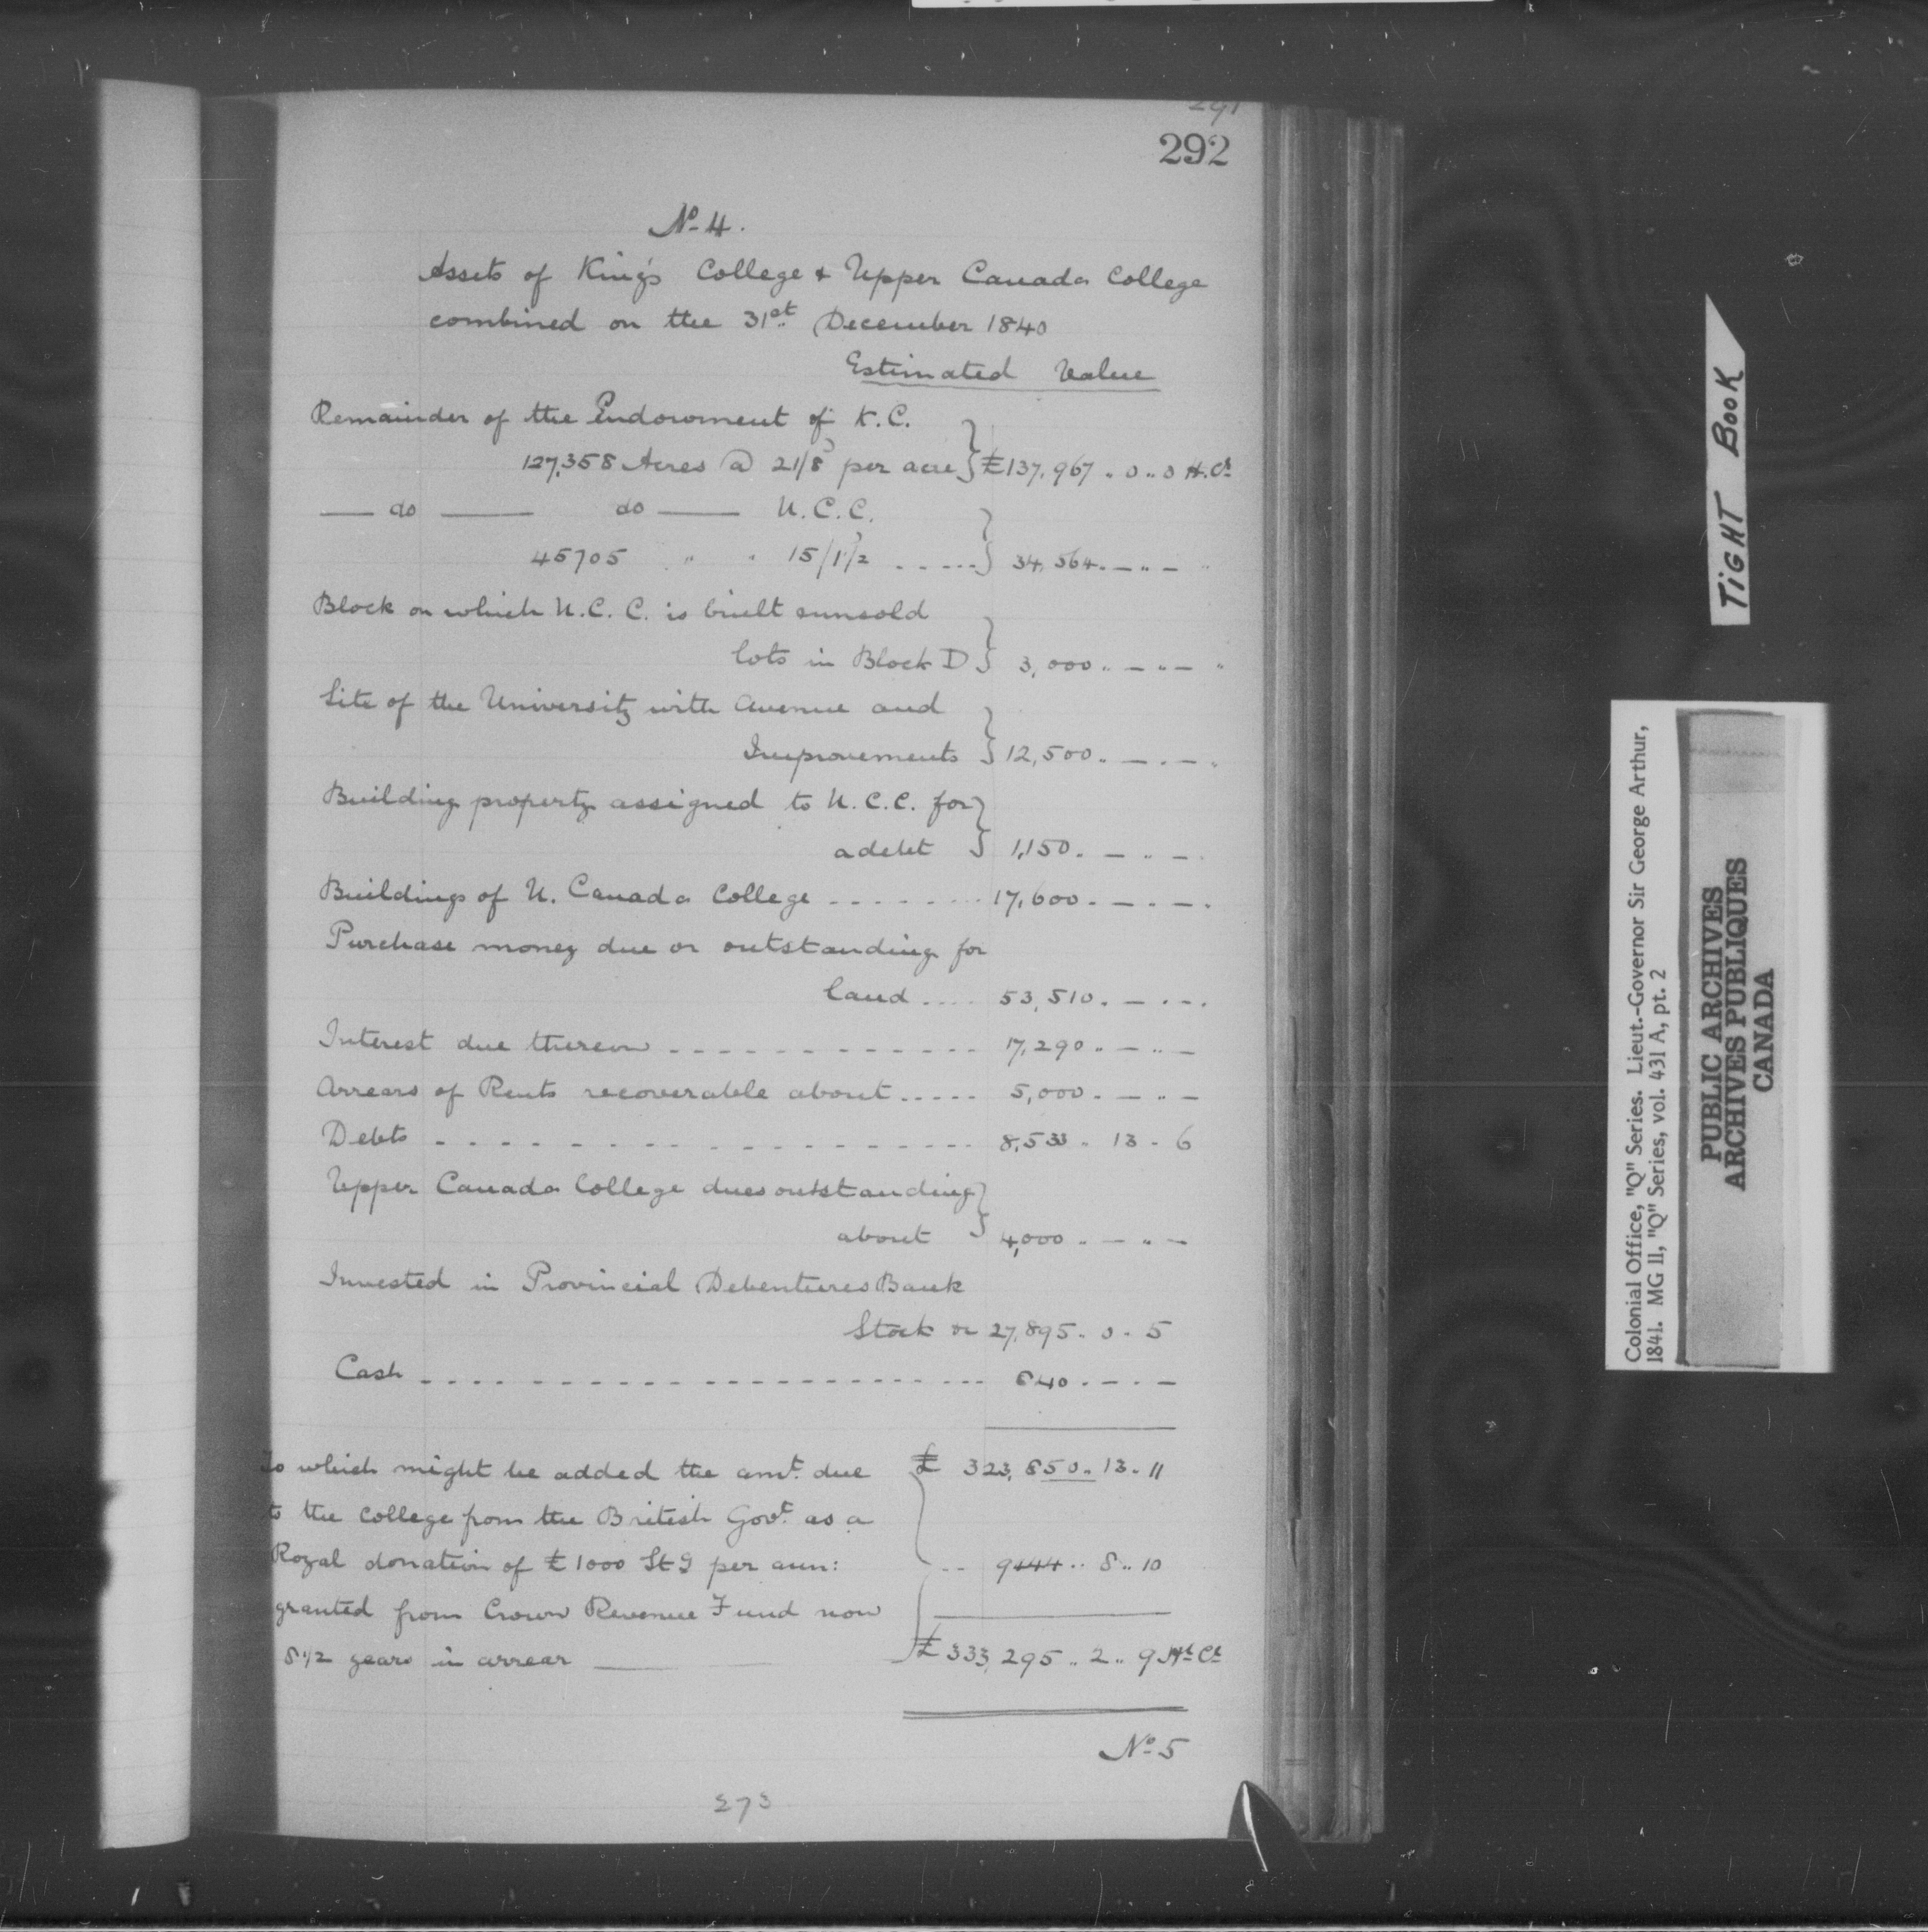 291
292
No 4.
Assets of King's College & Upper Canada College
combined on the 31st December 1840
Estimated Value
Remainder of the Endowment of K.C.
127,358 Acres @ 21/8 per acre } £137,967 .. 0 .. 0 H. Cy
— do — do — U.C.C.
45705 " " 15/1½ ...... } 34,564. — .. — "
Block on which U.C.C. is built & unsold
lots in Block D } 3,000 .. — .. — "
Site of the University with Avenue and
Improvements } 12,500 .. — . — .
Building property assigned to U.C.C. for
a debt } 1,150. — .. —
Buildings of U. Canada College ........ 17,600. — . — .
Purchase money due or outstanding for
land .... 53,510. — . — .
Interest due thereon ............ 17,290 .. — .. —
Arrears of Rents recoverable about ..... 5,000. — .. —
Debts ............ 8,533 .. 13 . 6
Upper Canada College dues outstanding
about } 4,000 .. — .. —
Invested in Provincial Debentures Bank
Stock &c 27,895 . 0 . 5
Cash ............ 840. — . —
To which might be added the amt. due £ 323,850 .. 13 . 11
to the College from the British Govt. as a
Royal donation of £1000 Stg per ann: ... 9444 .. 8 .. 10
granted from Crown Revenue Fund now
8½ years in arrear — £333,295 .. 2 .. 9 Hx Cy
No 5
273
TIGHT BOOK
Colonial Office, "Q" Series. Lieut.-Governor Sir George Arthur,
1841. MG 11, "Q" Series, vol. 431 A, pt. 2
PUBLIC ARCHIVES
ARCHIVES PUBLIQUES
CANADA